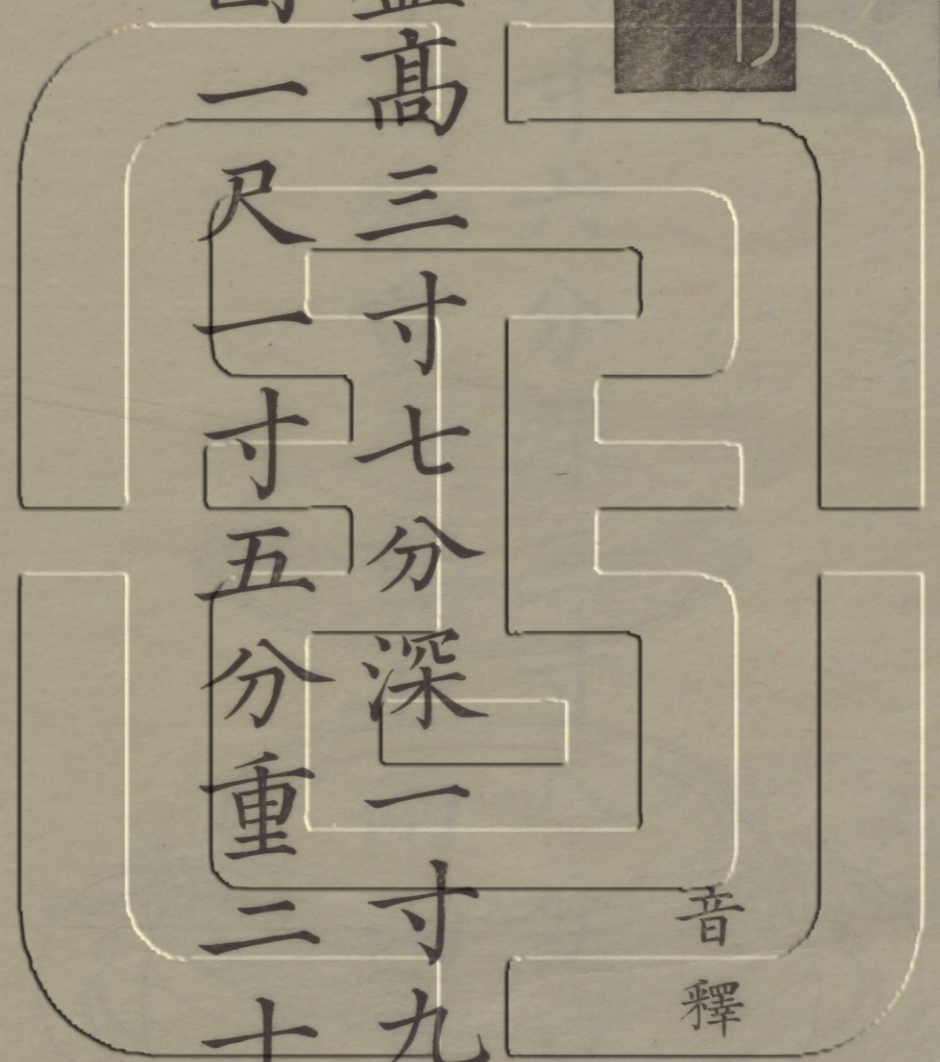 音釋
高三寸七分深一寸九
一尺一寸五分重二十